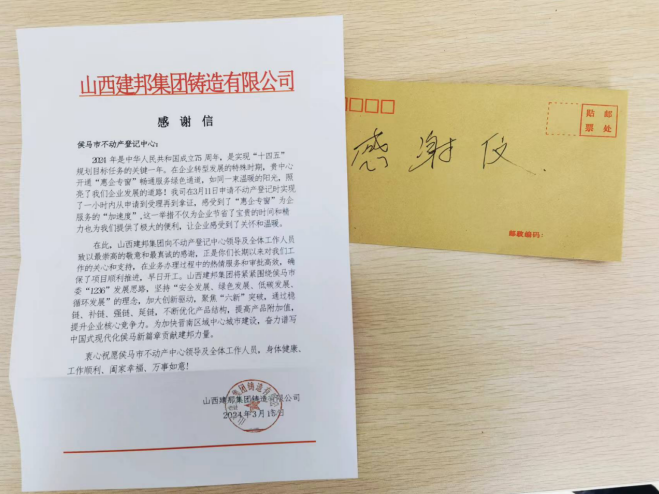 山西建邦集团铸造有限公司
感谢信
侯马市不动产登记中心:
2024 年是中华人民共和国成立75 周年,是实现“十四五”
规划目标任务的关键一年。在企业转型发展的特殊时期,贵中心
开通“惠企专窗”畅通服务绿色通道,如同一束温暖的阳光,照
亮了我们企业发展的道路!我司在3月11日申请不动产登记时实现
了一小时内从申请到受理再到拿证,感受到了“惠企专窗”为企
服务的“加速度”,这一举措不仅为企业节省了宝贵的时间和精
力也为我们提供了极大的便利,让企业感受到了关怀和温暖。
在此,山西建邦集团向不动产登记中心领导及全体工作人员
致以最崇高的敬意和最真诚的感谢,正是你们长期以来对我们工
作的关心和支持,在业务办理过程中的热情服务和审批高效,确
保了项目顺利推进,早日开工。山西建邦集团将紧紧围绕侯马市
委“1236”发展思路,坚持“安全发展、绿色发展、低碳发展、
循环发展”的理念,加大创新驱动,聚焦“六新”突破,通过稳
链、补链、强链、延链,不断优化产品结构,提高产品附加值,
提升企业核心竞争力。为加快晋南区域中心城市建设,奋力谱写
中国式现代化侯马新篇章贡献建邦力量。
衷心祝愿侯马市不动产中心领导及全体工作人员,身体健康、
工作顺利、阖家幸福、万事如意!
山西建邦集团铸造有限公司
2024年3月15日
贴 邮
票 处
感谢仪
邮政编码: